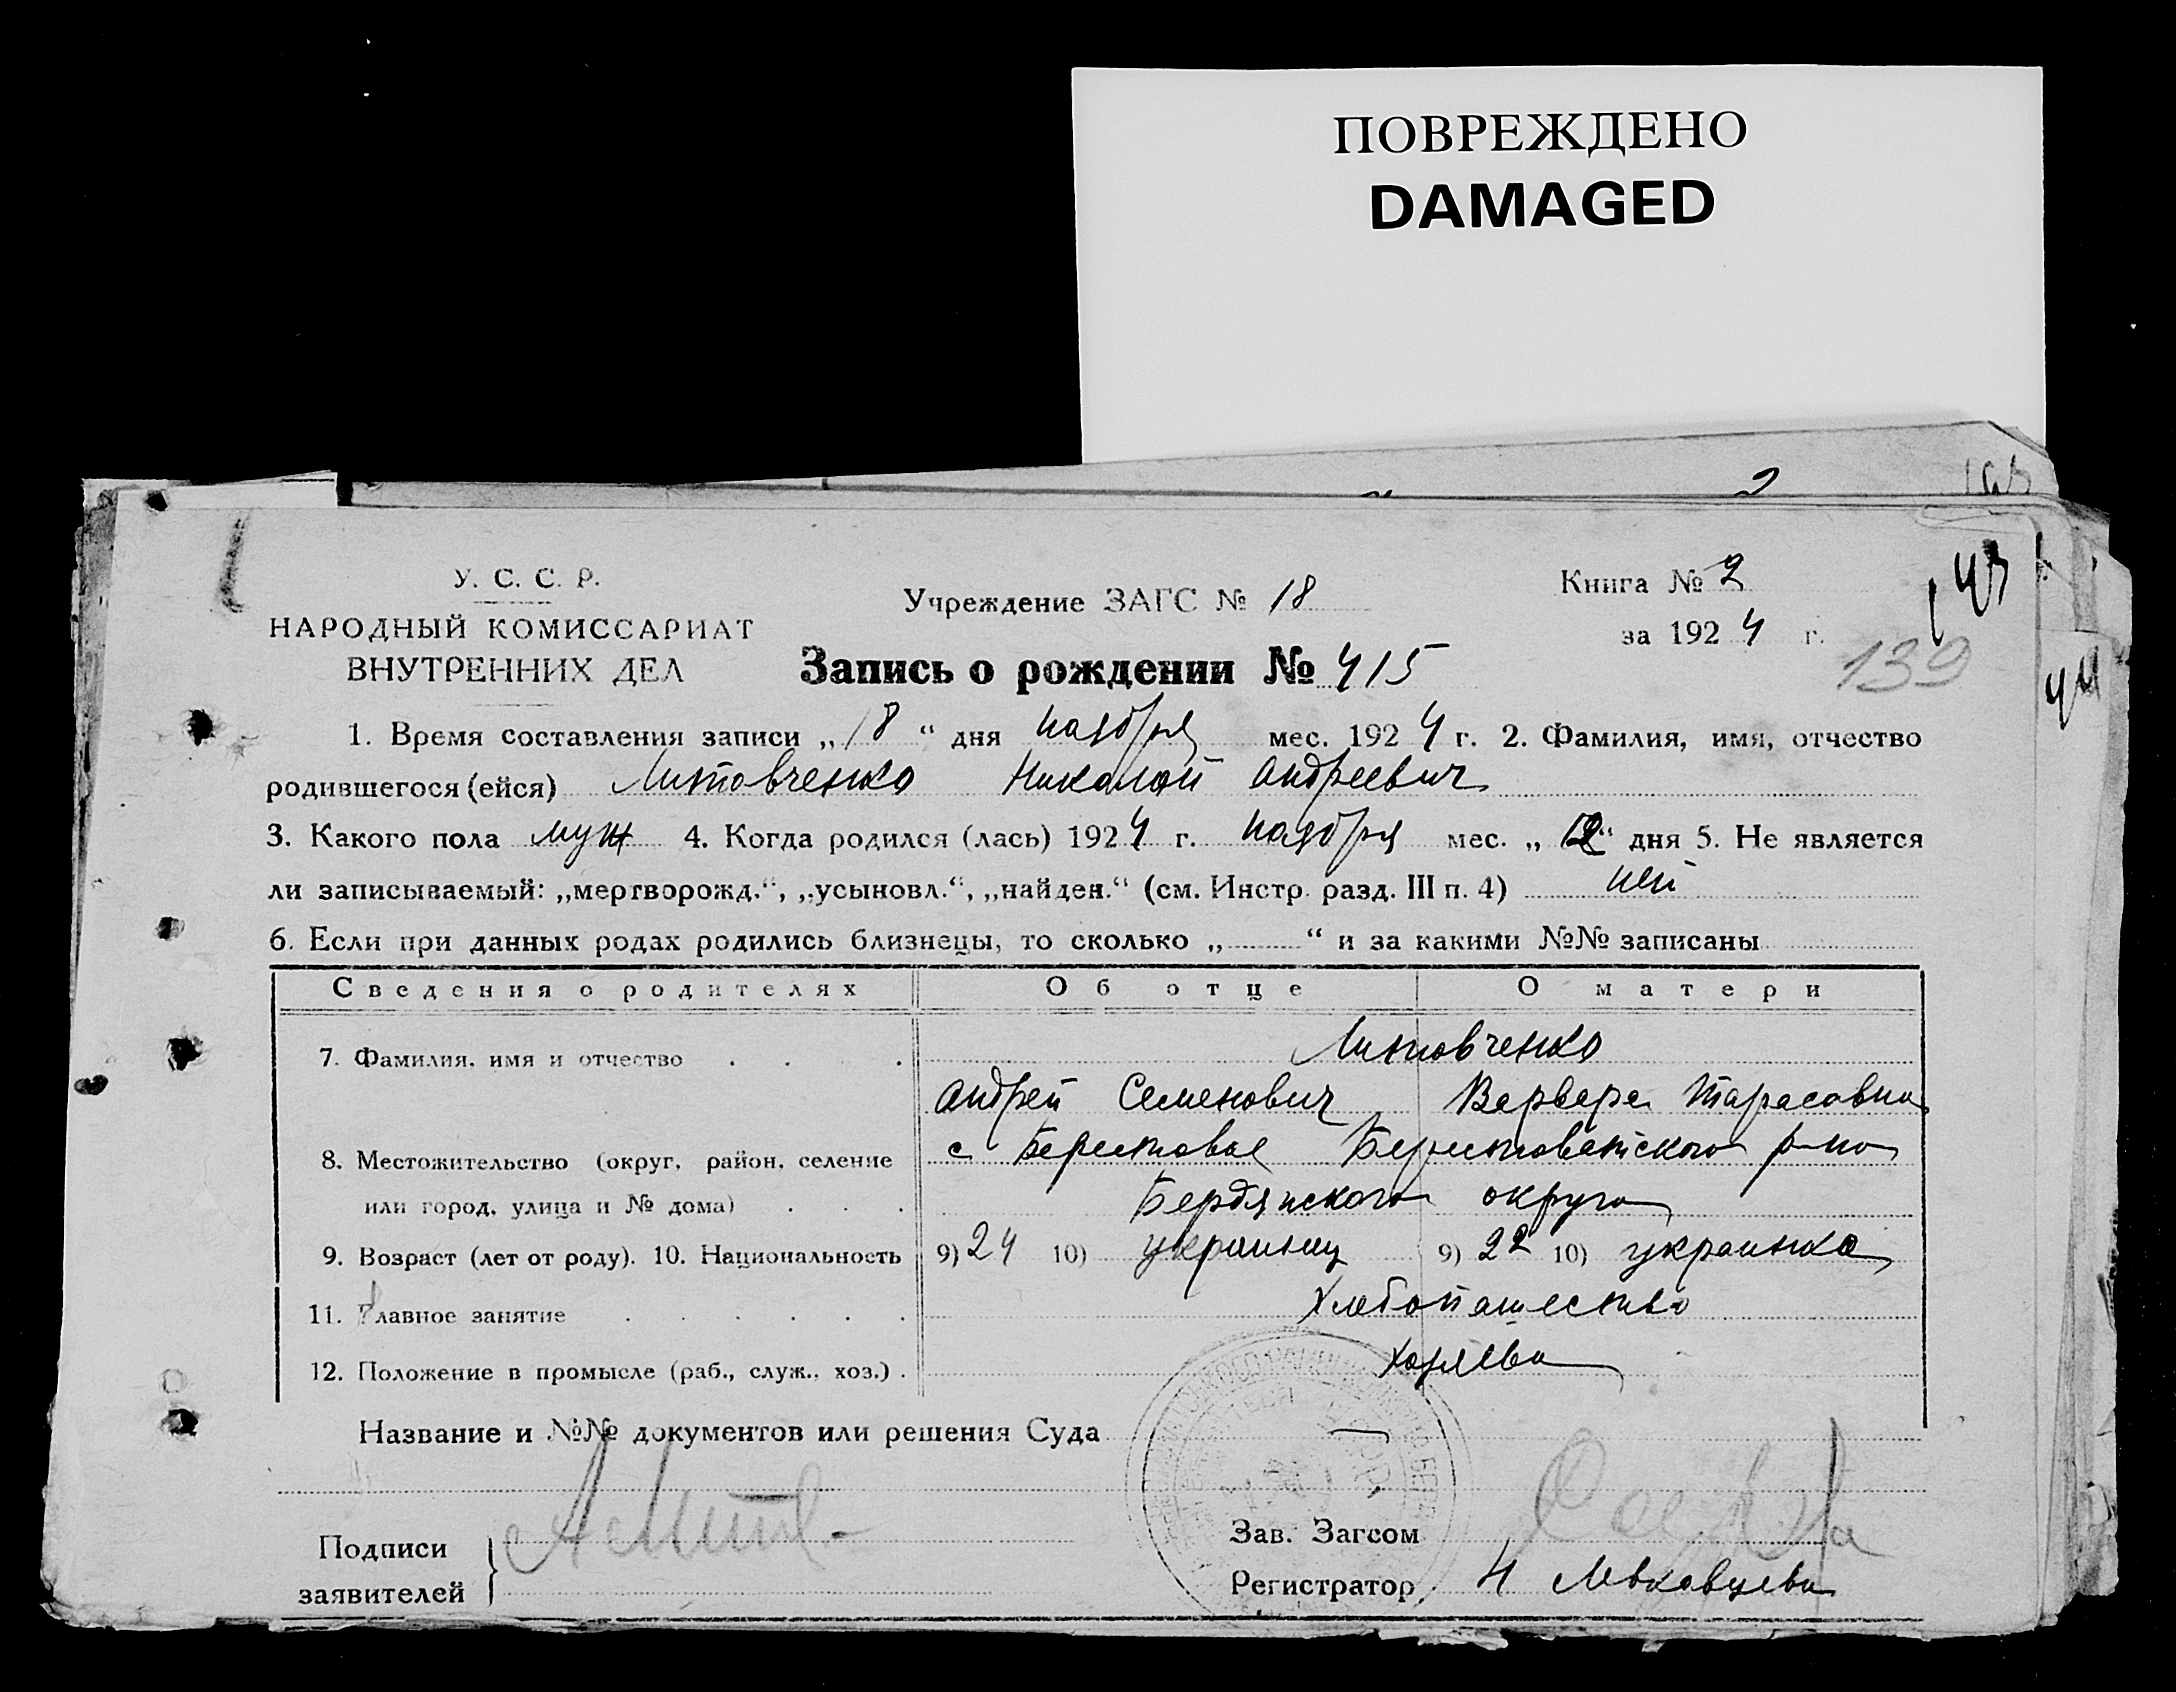 ПОВРЕЖДЕНО
DAMAGED
У. С. С. Р.
НАРОДНЫЙ КОМИССАРИАТ
ВНУТРЕННИХ ДЕЛ
Учреждение ЗАГС № 18
Книга № 2
за 1924 г.
139
Запись о рождении № 415
1. Время составления записи „18“ дня ноября мес. 1924 г. 2. Фамилия, имя, отчество
родившегося (ейся) Литовченко Николай Андреевич
3. Какого пола муж 4. Когда родился (лась) 1924 г. ноября мес. „ “ дня 5. Не является
ли записываемый: „мертворожд.“, „усыновл.“, „найден.“ (см. Инстр. разд. III п. 4) нет
6. Если при данных родах родились близнецы, то сколько „ “ и за какими №№ записаны
Сведения о родителях Об отце О матери
7. Фамилия, имя и отчество Литовченко
Андрей Семенович Варвара Тарасовна
8. Местожительство (округ, район, селение с Берестовое Берестоватского р-на
или город, улица и № дома) Бердянского округа
9. Возраст (лет от роду). 10. Национальность 9) 24 10) украинец 9) 22 10) украинка
11. Главное занятие Хлебопашество
12. Положение в промысле (раб., служ., хоз.) хозяева
Название и №№ документов или решения Суда
Подписи
заявителей
Зав. Загсом
Регистратор Н